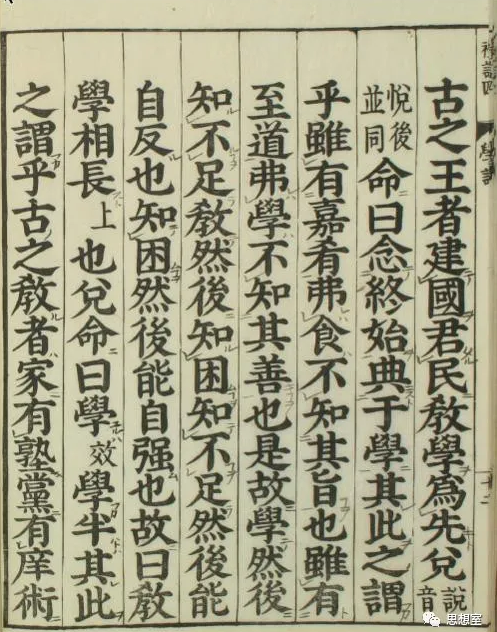 古之王者建國君民敎學爲先兌音說
悅後並同命曰念終始典于學其此之謂
乎雖有嘉肴弗食不知其旨也雖有
至道弗學不知其善也是故學然後
知不足敎然後知困知不足然後能
自反也知困然後能自强也故曰敎
學相長上也兌命曰學效學半其此
之謂乎古之敎者家有塾黨有庠術
思想室